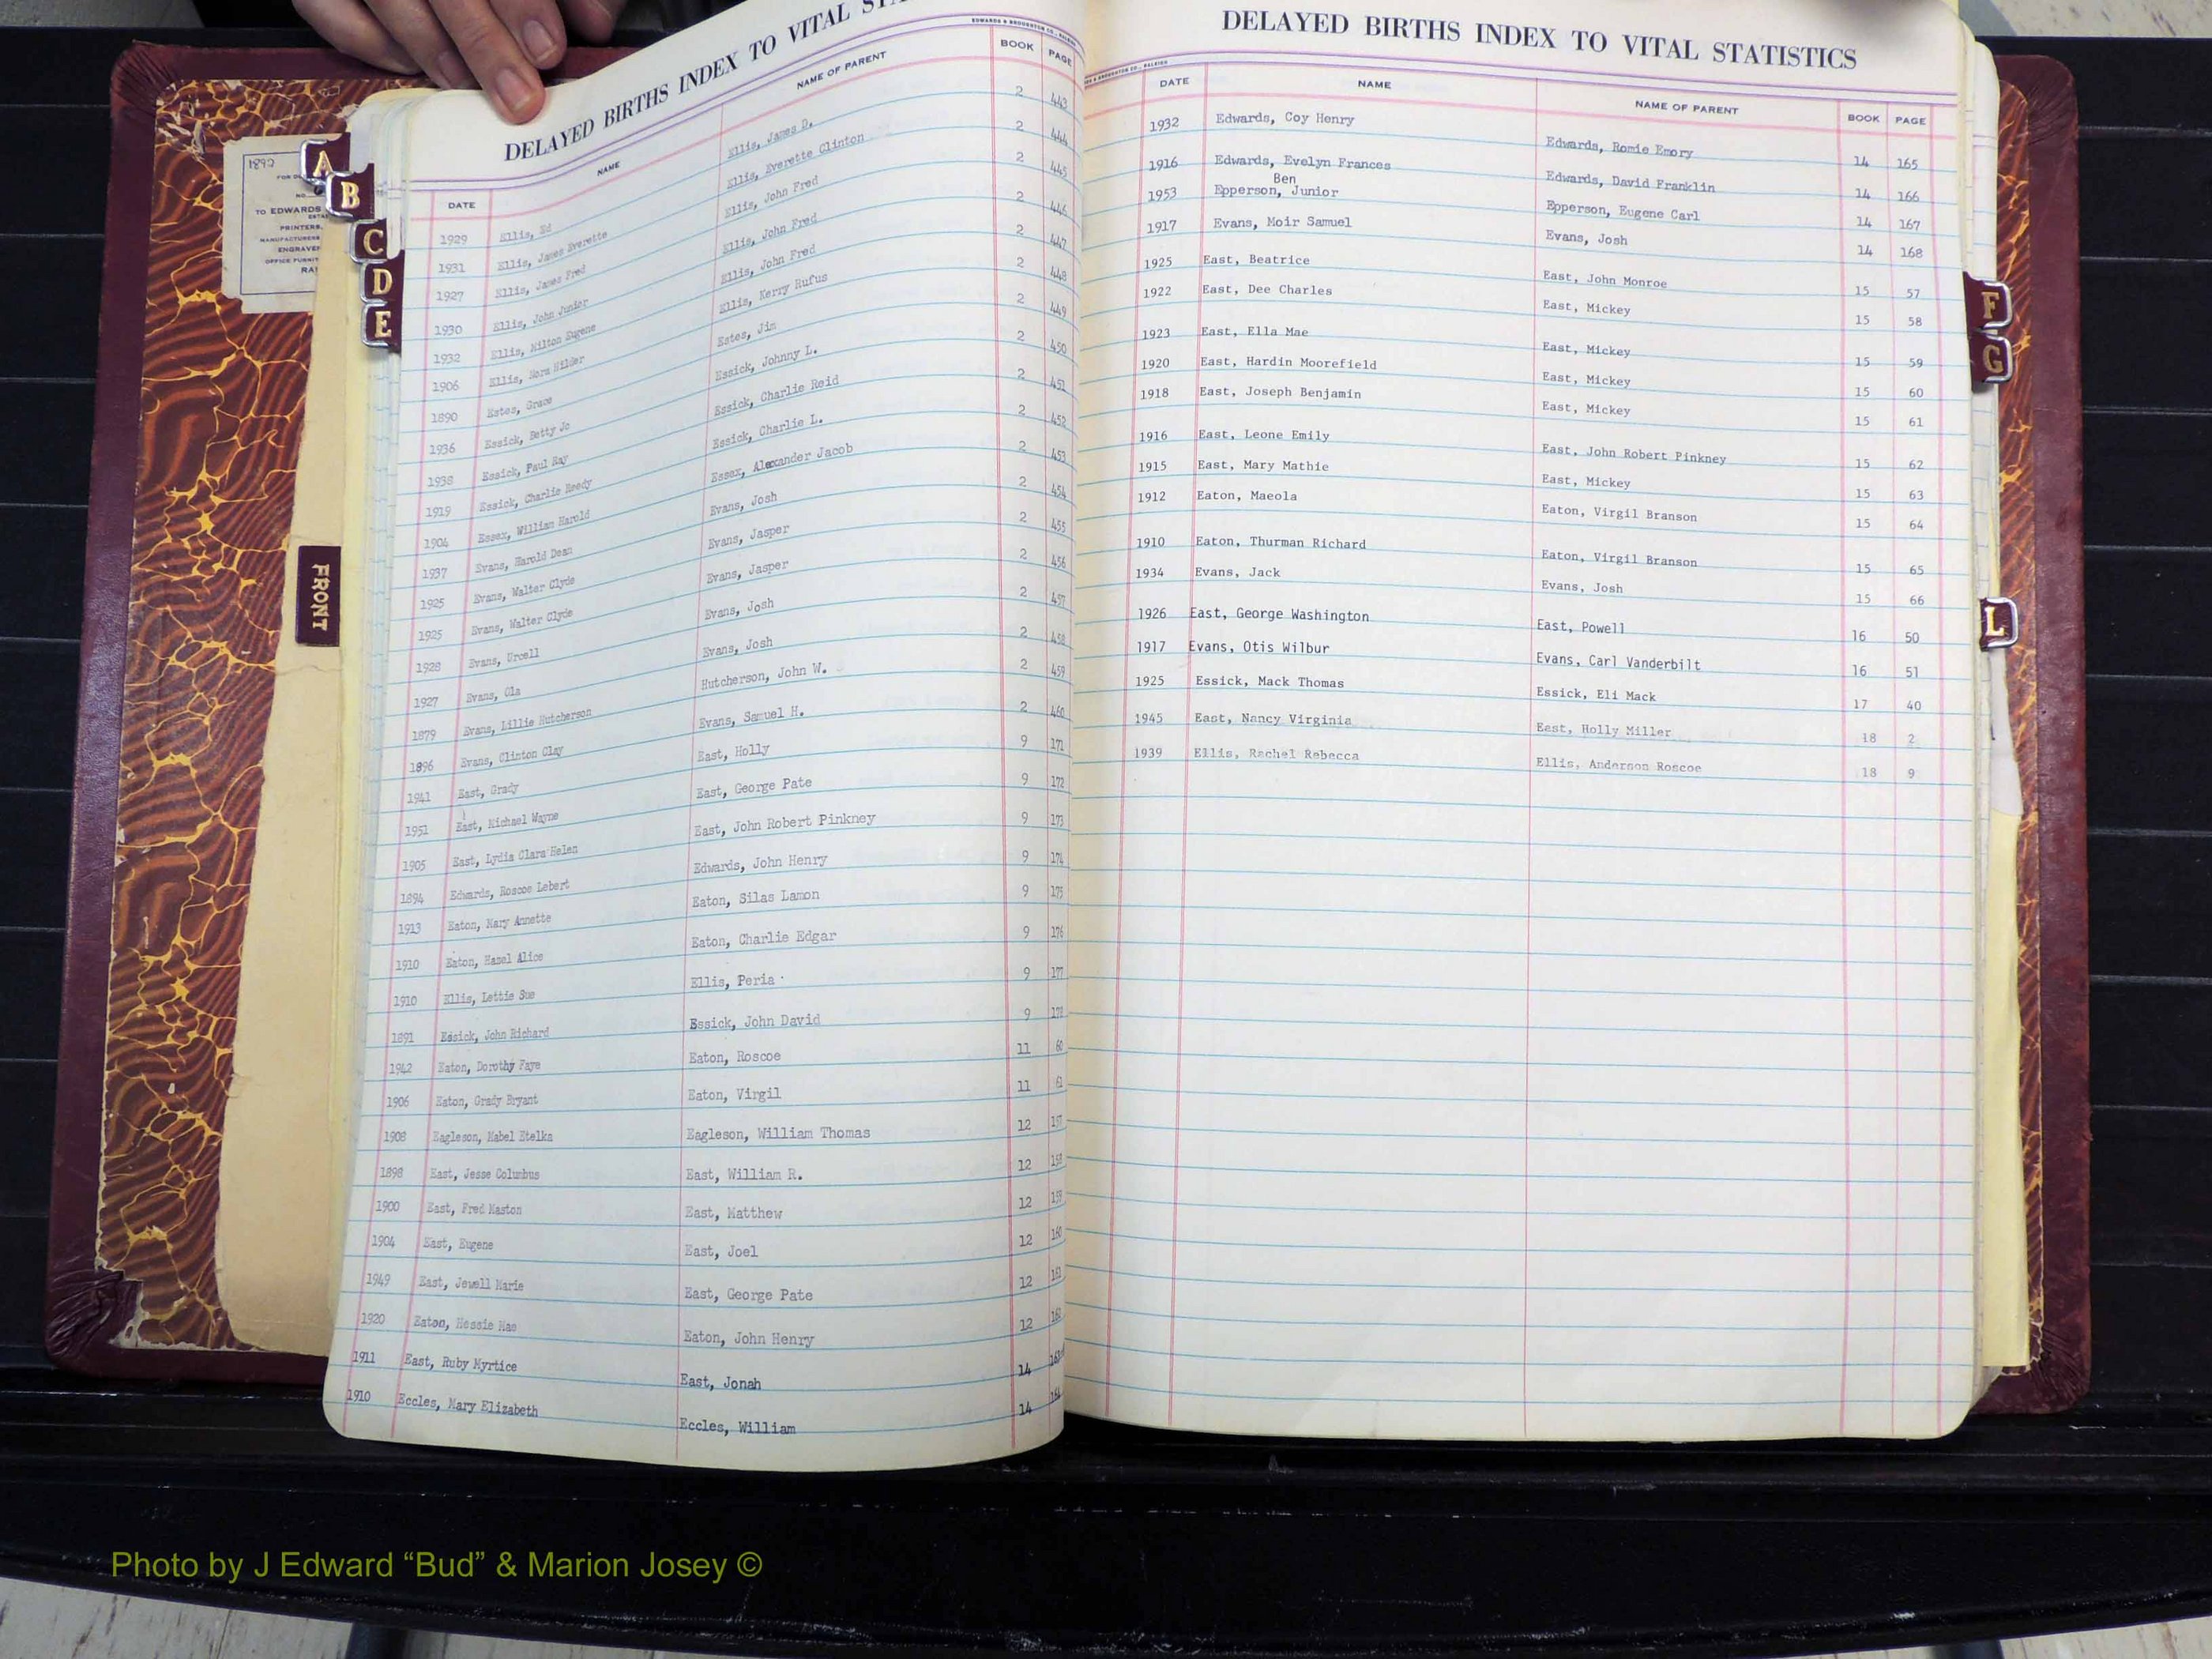 DELAYED BIRTHS INDEX TO VITAL
EDWARDS & BROUGHTON CO., RALEIGH
DATE NAME NAME OF PARENT BOOK PAGE
1929 Ellis, Ed Ellis, James D. 2 443
1931 Ellis, James Everette Ellis, Everette Clinton 2 444
1927 Ellis, James Fred Ellis, John Fred 2 445
1930 Ellis, John Junior Ellis, John Fred 2 446
1932 Ellis, Milton Eugene Ellis, John Fred 2 447
1906 Ellis, Nora Wilder Ellis, Kerry Rufus 2 448
1890 Estes, Grace Estes, Jim 2 449
1936 Essick, Betty Jo Essick, Johnny L. 2 450
1938 Essick, Paul Ray Essick, Charlie Reid 2 451
1919 Essick, Charlie Reedy Essick, Charlie L. 2 452
1904 Essex, William Harold Essex, Alexander Jacob 2 453
1937 Evans, Harold Dean Evans, Josh 2 454
1925 Evans, Walter Clyde Evans, Jasper 2 455
1925 Evans, Walter Clyde Evans, Jasper 2 456
1928 Evans, Urcell Evans, Josh 2 457
1927 Evans, Ola Evans, Josh 2 458
1879 Evans, Lillie Hutcherson Hutcherson, John W. 2 459
1896 Evans, Clinton Clay Evans, Samuel H. 2 460
1941 East, Grady East, Holly 9 171
1951 East, Michael Wayne East, George Pate 9 172
1905 East, Lydia Clara Helen East, John Robert Pinkney 9 173
1894 Edwards, Roscoe Lebert Edwards, John Henry 9 174
1913 Eaton, Mary Annette Eaton, Silas Lamon 9 175
1910 Eaton, Hazel Alice Eaton, Charlie Edgar 9 176
1910 Ellis, Lettie Sue Ellis, Peria 9 177
1891 Essick, John Richard Essick, John David 9 178
1942 Eaton, Dorothy Faye Eaton, Roscoe 11 60
1906 Eaton, Grady Bryant Eaton, Virgil 11 61
1908 Eagleson, Mabel Etelka Eagleson, William Thomas 12 157
1898 East, Jesse Columbus East, William R. 12 158
1900 East, Fred Maston East, Matthew 12 159
1904 East, Eugene East, Joel 12 160
1949 East, Jewell Marie East, George Pate 12 161
1920 Eaton, Hessie Mae Eaton, John Henry 12 162
1911 East, Ruby Myrtice East, Jonah 14 163
1910 Eccles, Mary Elizabeth Eccles, William 14 164
DELAYED BIRTHS INDEX TO VITAL STATISTICS
DATE NAME NAME OF PARENT BOOK PAGE
1932 Edwards, Coy Henry Edwards, Romie Emory 14 165
1916 Edwards, Evelyn Frances Edwards, David Franklin 14 166
Ben
1953 Epperson, Junior Epperson, Eugene Carl 14 167
1917 Evans, Moir Samuel Evans, Josh 14 168
1925 East, Beatrice East, John Monroe 15 57
1922 East, Dee Charles East, Mickey 15 58
1923 East, Ella Mae East, Mickey 15 59
1920 East, Hardin Moorefield East, Mickey 15 60
1918 East, Joseph Benjamin East, Mickey 15 61
1916 East, Leone Emily East, John Robert Pinkney 15 62
1915 East, Mary Mathie East, Mickey 15 63
1912 Eaton, Maeola Eaton, Virgil Branson 15 64
1910 Eaton, Thurman Richard Eaton, Virgil Branson 15 65
1934 Evans, Jack Evans, Josh 15 66
1926 East, George Washington East, Powell 16 50
1917 Evans, Otis Wilbur Evans, Carl Vanderbilt 16 51
1925 Essick, Mack Thomas Essick, Eli Mack 17 40
1945 East, Nancy Virginia East, Holly Miller 18 2
1939 Ellis, Rachel Rebecca Ellis, Anderson Roscoe 18 9
A
B
C
D
E
F
G
L
FRONT
1892
TO EDWARDS
PRINTERS,
Photo by J Edward “Bud” & Marion Josey ©